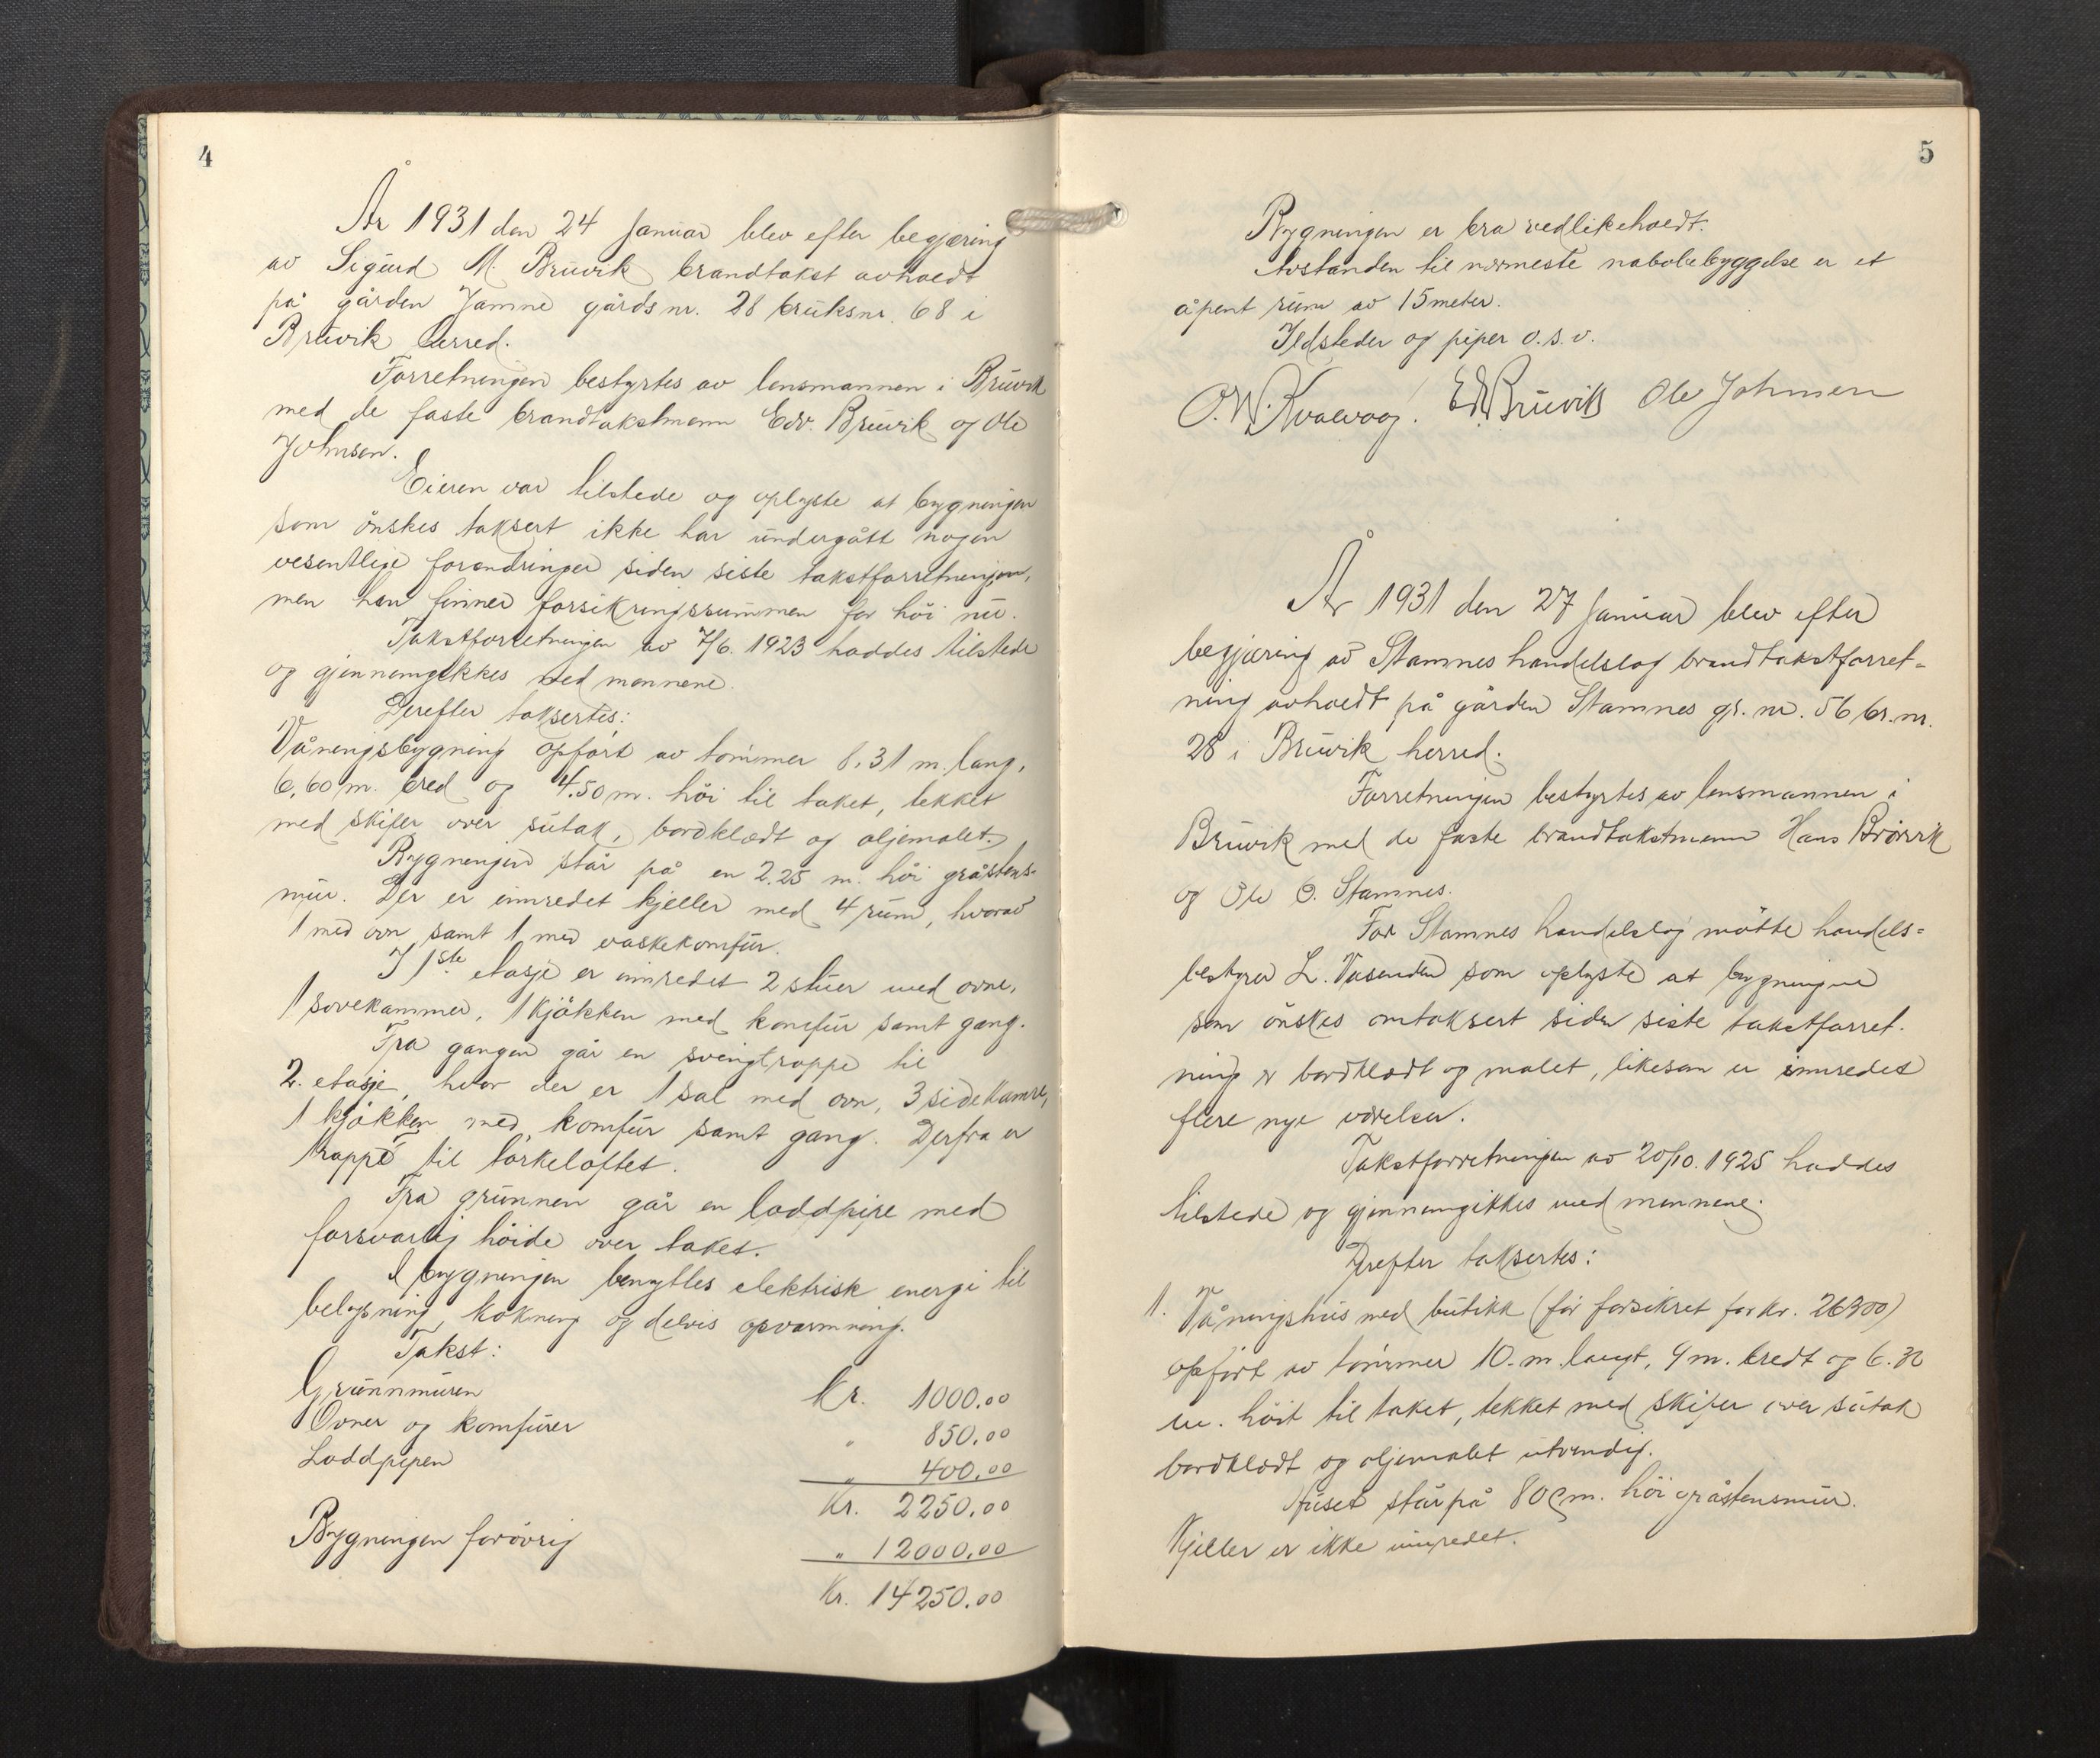 4
År 1931 den 24 Januar blev efter begjæring
av Sigurd M. Bruvik brandtakst avholdt
på gården Jamne gårds nr. 28 bruksnr. 68 i
Bruvik herred.
Forretningen bestyrtes av lensmannen i Bruvik
med de faste brandtakstmenn Edv. Bruvik og Ole
Johnsen.
Eieren var tilstede og oplyste at bygningen
som önskes taksert ikke har undergått nogen
vesentlige forandringer siden siste takstforretningen,
men han finner forsikringssummen for höi nu.
Takstforretningen av 7/6. 1923 haddes tilstede
og gjennemgikkes med mennene.
Derefter taksertes:
Våningsbygning opfört av tömmer 8.31 m. lang,
6,60 m. bred og 4.50 m. höi til taket, tekket
med skifer over sutak, bordklædt og oljemalet.
Bygningen står på en 2.25 m. höi gråstens-
mur. Der er innredet kjeller med 4 rum, hvorav
1 med ovn samt 1 med vaskekomfur.
I 1ste etasje er innredet 2 stuer med ovne,
1 sovekammer, 1 kjökken med komfur samt gang.
Fra gangen går en svingtrappe til
2. etasje, hvor der er 1 sal med ovn, 3 sidekamre,
1 kjökken med komfur samt gang. Derfra er
trappe til törkeloftet.
Fra grunnen går en loddpipe med
forsvarlig höide over taket.
I bygningen benyttes elektrisk energi til
belysning, kokning og delvis opvarmning.
Takst:
Grunnmuren Kr. 1000.00
Ovner og komfurer " 850.00
Loddpipen " 400.00
Kr. 2250.00
Bygningen forövrig " 12000.00
Kr. 14250.00
5
Bygningen er bra vedlikeholdt.
Avstanden til nærmeste nabobebyggelse er et
åpent rum av 15 meter.
Ildsteder og piper o.s.v.
O. W. Kvalvaag. Edv Bruvik Ole Johnsen
År 1931 den 27 Januar blev efter
begjæring av Stamnes handelslag brandtakstforret-
ning avholdt på gården Stamnes gr. nr. 56 br. nr.
28 i Bruvik herred.
Forretningen bestyrtes av lensmannen i
Bruvik med de faste brandtakstmenn Hans Brörvik
og Ole O. Stamnes.
For Stamnes handelslag mötte handels-
bestyrer L. Vasenden som oplyste at bygningene
som önskes omtaksert siden siste takstforret-
ning er bordklædt og malet, likesom er innredet
flere nye værelser.
Takstforretningen av 20/10. 1925 haddes
tilstede og gjennemgikkes med mennene.
Derefter taksertes:
1. Våningshus med butikk (för forsikret for kr. 26300)
opfört av tömmer 10. m. langt, 9 m. bredt og 6.30
m. höit til taket, tekket med skifer over sutak
bordklædt og oljemalet utvendig.
Huset står på 80 cm. höi gråstensmur.
Kjeller er ikke innredet.